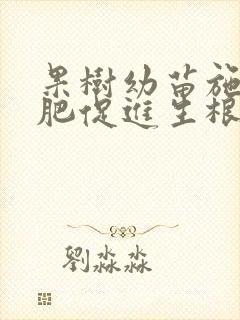 果樹幼苗施
肥促進生根
劉淼淼